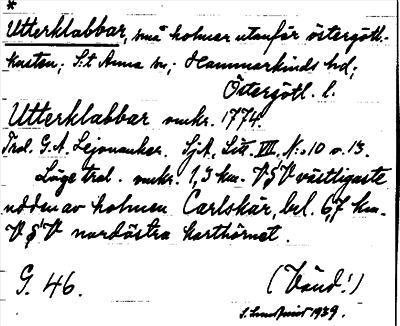 *
Utterklabbar, små holmar utanför östergötl.
kusten; S:t Anna sn; Hammarkinds hd;
Östergötl. l.
Utterklabbar omkr. 1774.
Trol. G. A. Lejonanker. SjA, Sit. VII. N:o 10 o. 13.
Läge trol. omkr. 1,3 km. V§V västligaste
udden av holmen Carlskär, bel. 6,7 km.
V§V nordöstra karthörnet.
G. 46.
(Vänd!)
S. Lundqvist 1939.